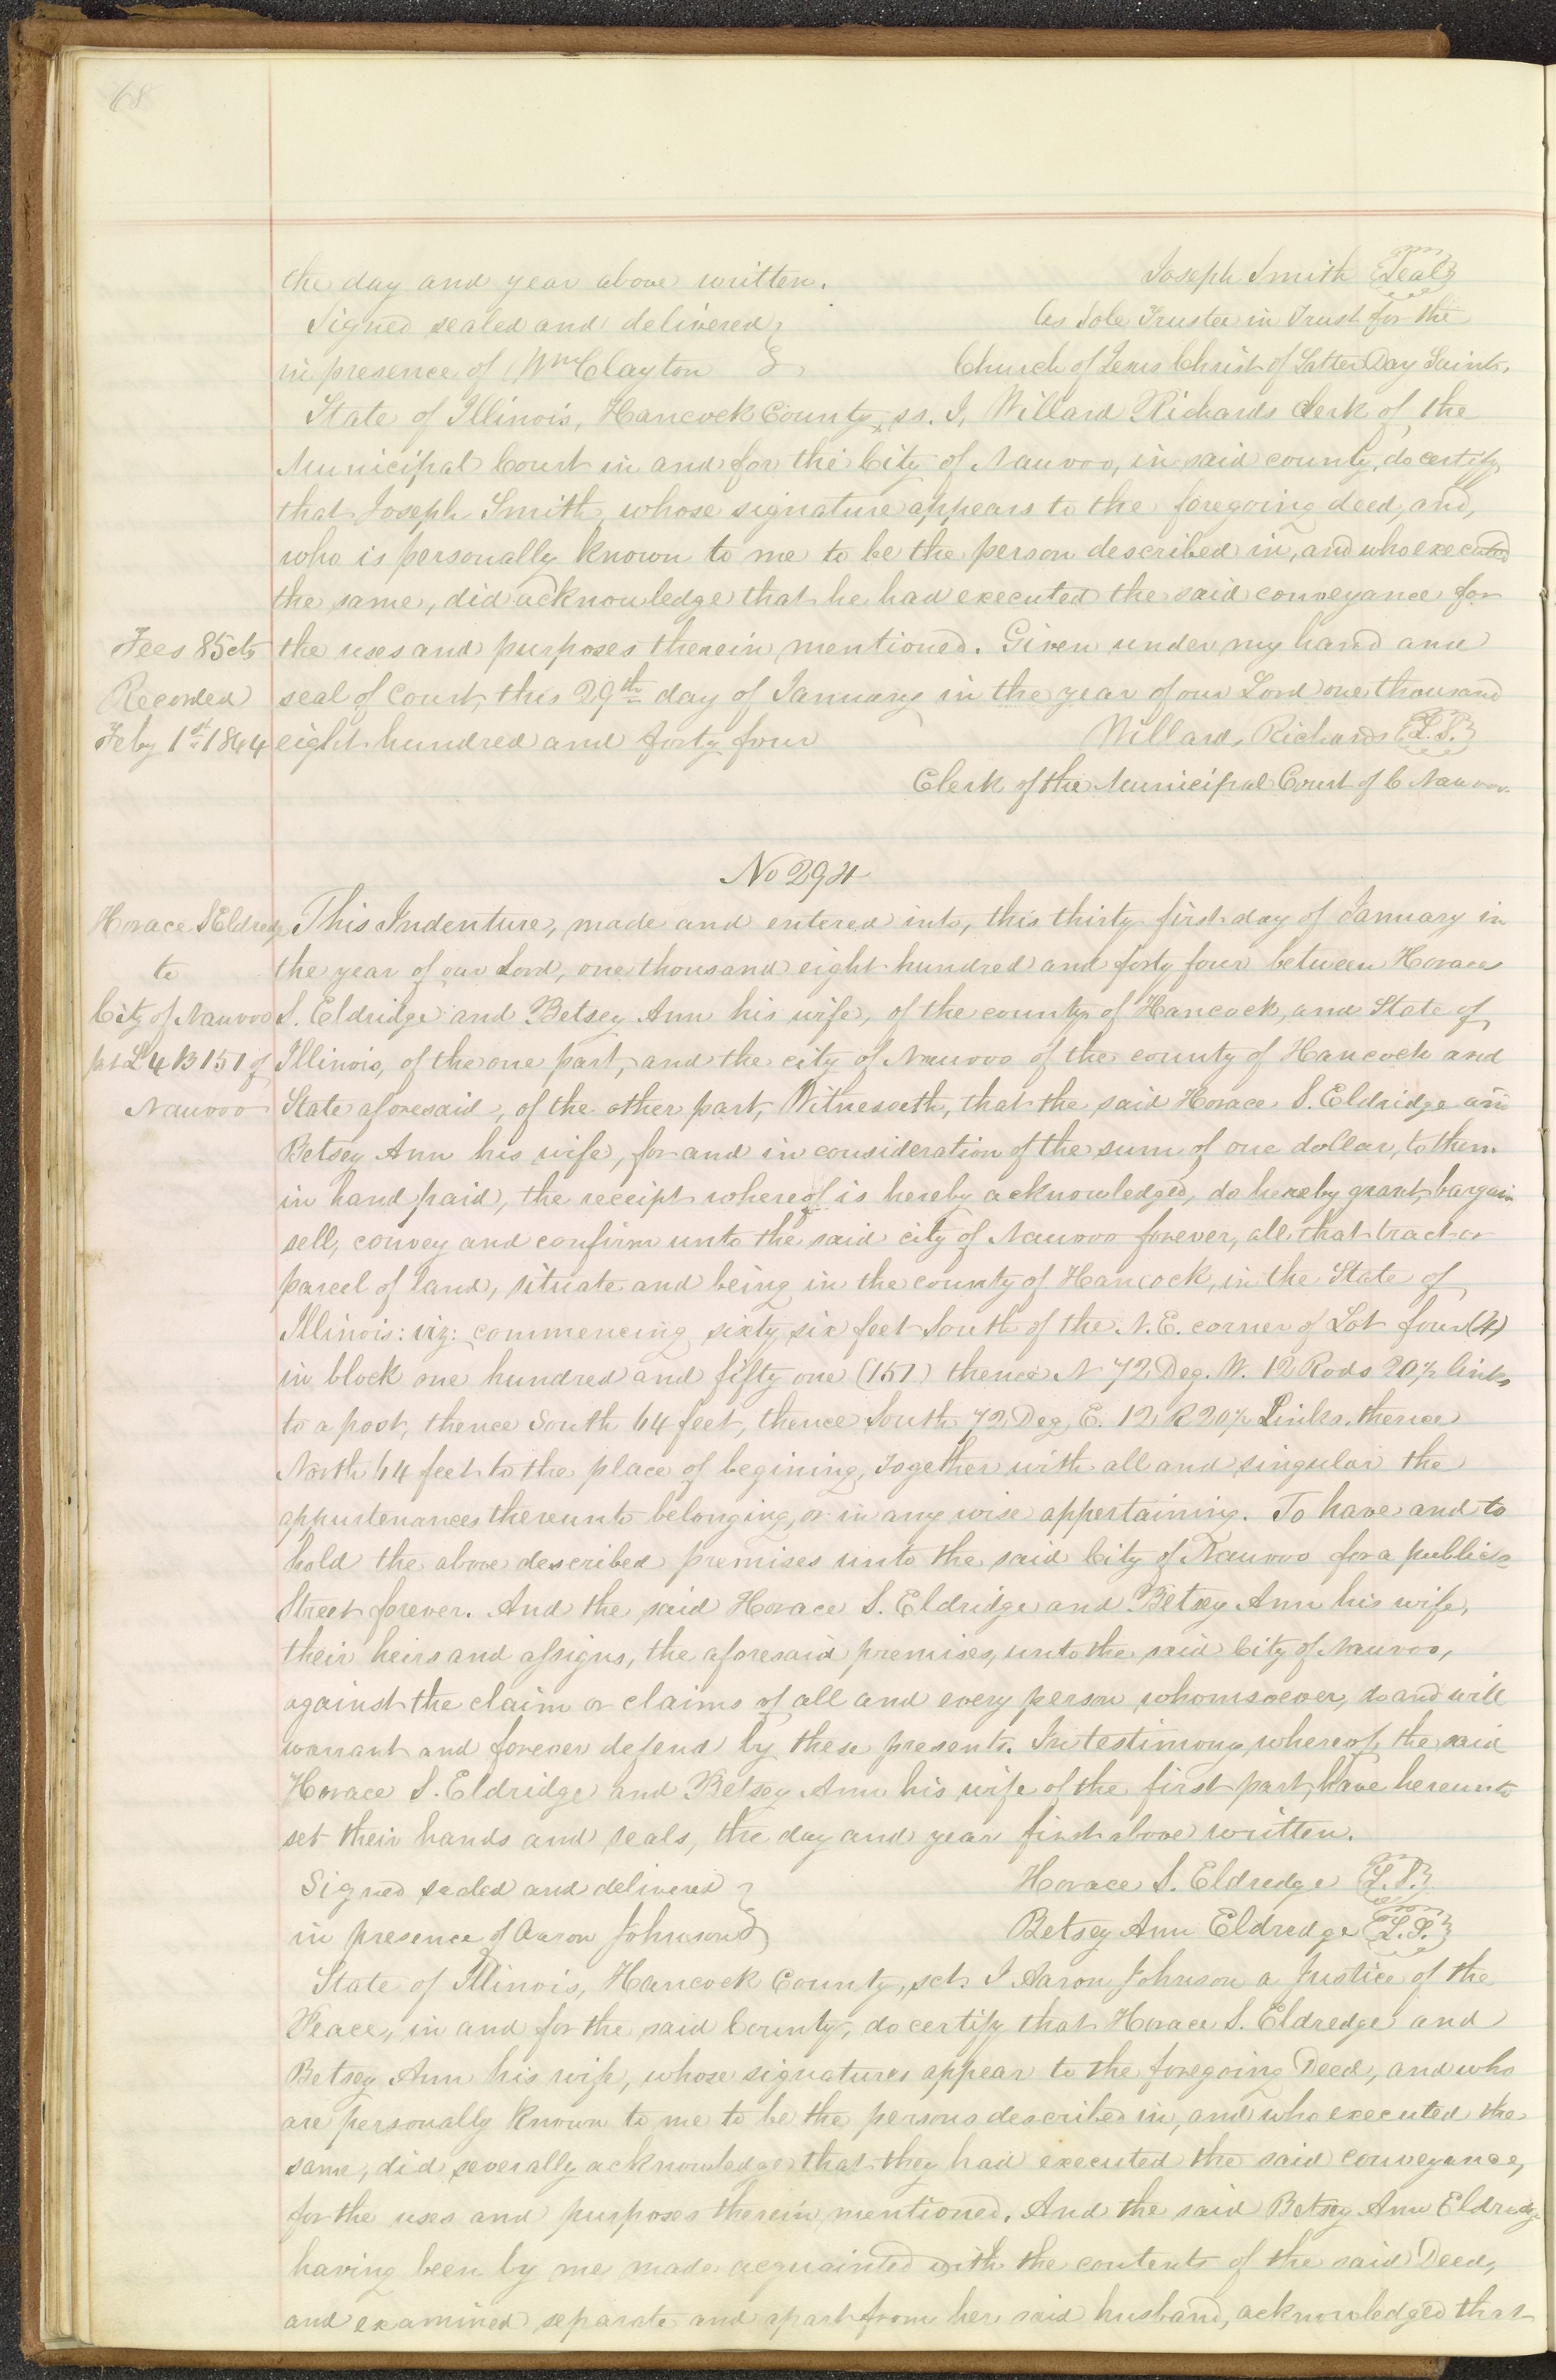 68
the day and year above written. Joseph Smith {Seal}
Signed sealed and delivered } As Sole Trustee in Trust for the
in presence of Wm Clayton } Church of Jesus Christ of Latter Day Saints.
State of Illinois, Hancock County, ss. I, Willard Richards clerk of the
Municipal Court in and for the City of Nauvoo, in said county, do certify
that Joseph Smith, whose signature appears to the foregoing deed, and,
who is personally known to me to be the person described in, and who executed
the same, did acknowledge that he had executed the said conveyance for
Fees 85 cts the uses and purposes therein mentioned. Given under my hand and
Recorded seal of Court, this 29th day of January in the year of our Lord one thousand
Feby 1st 1844 eight hundred and forty four Willard Richards {L.S.}
Clerk of the Municipal Court of C Nauvoo.
No 294
Horace S Eldredge This Indenture, made and entered into, this thirty first day of January in
to the year of our Lord, one thousand eight hundred and forty four between Horace
City of Nauvoo S. Eldridge and Betsey Ann his wife, of the county of Hancock, and State of
pt L 4 B 151 of Illinois, of the one part, and the city of Nauvoo of the county of Hancock and
Nauvoo State aforesaid, of the other part, Witnesseth, that the said Horace S. Eldridge and
Betsey Ann his wife, for and in consideration of the sum of one dollar, to them
in hand paid, the receipt whereof is hereby acknowledged, do hereby grant, bargain
sell, convey and confirm unto the said city of Nauvoo forever, all that tract or
parcel of land, situate and being in the county of Hancock, in the State of
Illinois: viz: commencing sixty six feet South of the N.E. corner of Lot four (4)
in block one hundred and fifty one (151) thence N 72 Deg. W. 12 Rods 20½ links
to a post, thence South 64 feet, thence South 72 Deg. E. 12 R 20½ Links. thence
North 64 feet to the place of begining, together with all and singular the
appurtenances thereunto belonging, or in any wise appertaining. To have and to
hold the above described premises unto the said City of Nauvoo for a public
Street forever. And the said Horace S. Eldridge and Betsey Ann his wife,
their heirs and assigns, the aforesaid premises, unto the said City of Nauvoo,
against the claim or claims of all and every person whomsoever, do and will
warrant and forever defend by these presents. In testimony whereof, the said
Horace S. Eldridge and Betsey Ann his wife of the first part, have hereunto
set their hands and seals, the day and year first above written.
Signed sealed and delivered } Horace S. Eldredge {L.S.}
in presence of Aaron Johnson } Betsey Ann Eldredge {L.S.}
State of Illinois, Hancock County, sct. I Aaron Johnson a Justice of the
Peace, in and for the said County, do certify that Horace S. Eldredge and
Betsey Ann his wife, whose signatures appear to the foregoing Deed, and who
are personally known to me to be the persons described in, and who executed the
same, did severally acknowledge that they had executed the said conveyance,
for the uses and purposes therein mentioned. And the said Betsey Ann Eldredge
having been by me made acquainted with the contents of the said Deed,
and examined separate and apart from her said husband, acknowledged that